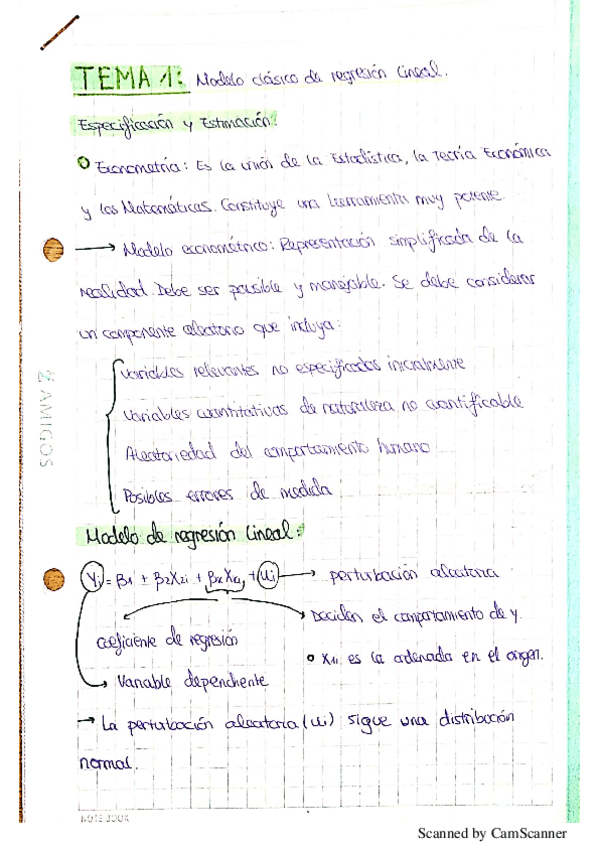 TEMA 1: Modelo clásico de regresión lineal.
Especificación y Estimación:
Econometría: Es la unión de la Estadística, la Teoría Económica
y las Matemáticas. Constituye una herramienta muy potente.
→ Modelo econométrico: Representación simplificada de la
realidad. Debe ser plausible y manejable. Se debe considerar
un componente aleatorio que incluya:
Variables relevantes no especificadas inicialmente
Variables cuantitativas de naturaleza no cuantificable
Aleatoriedad del comportamiento humano
Posibles errores de medida
Modelo de regresión lineal:
Yi = β1 + β2X2i + βkXki + ui → perturbación aleatoria
Deciden el comportamiento de y.
coeficiente de regresión
X1i es la ordenada en el origen.
Variable dependiente
→ La perturbación aleatoria (ui) sigue una distribución
normal.
AMIGOS
NOTEBOOK
Scanned by CamScanner